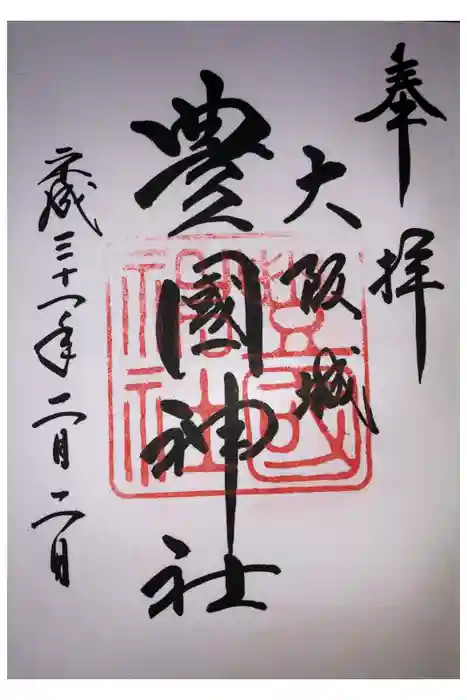 奉拝
大阪城
豊國神社
平成三十一年二月二日
豊國
神社